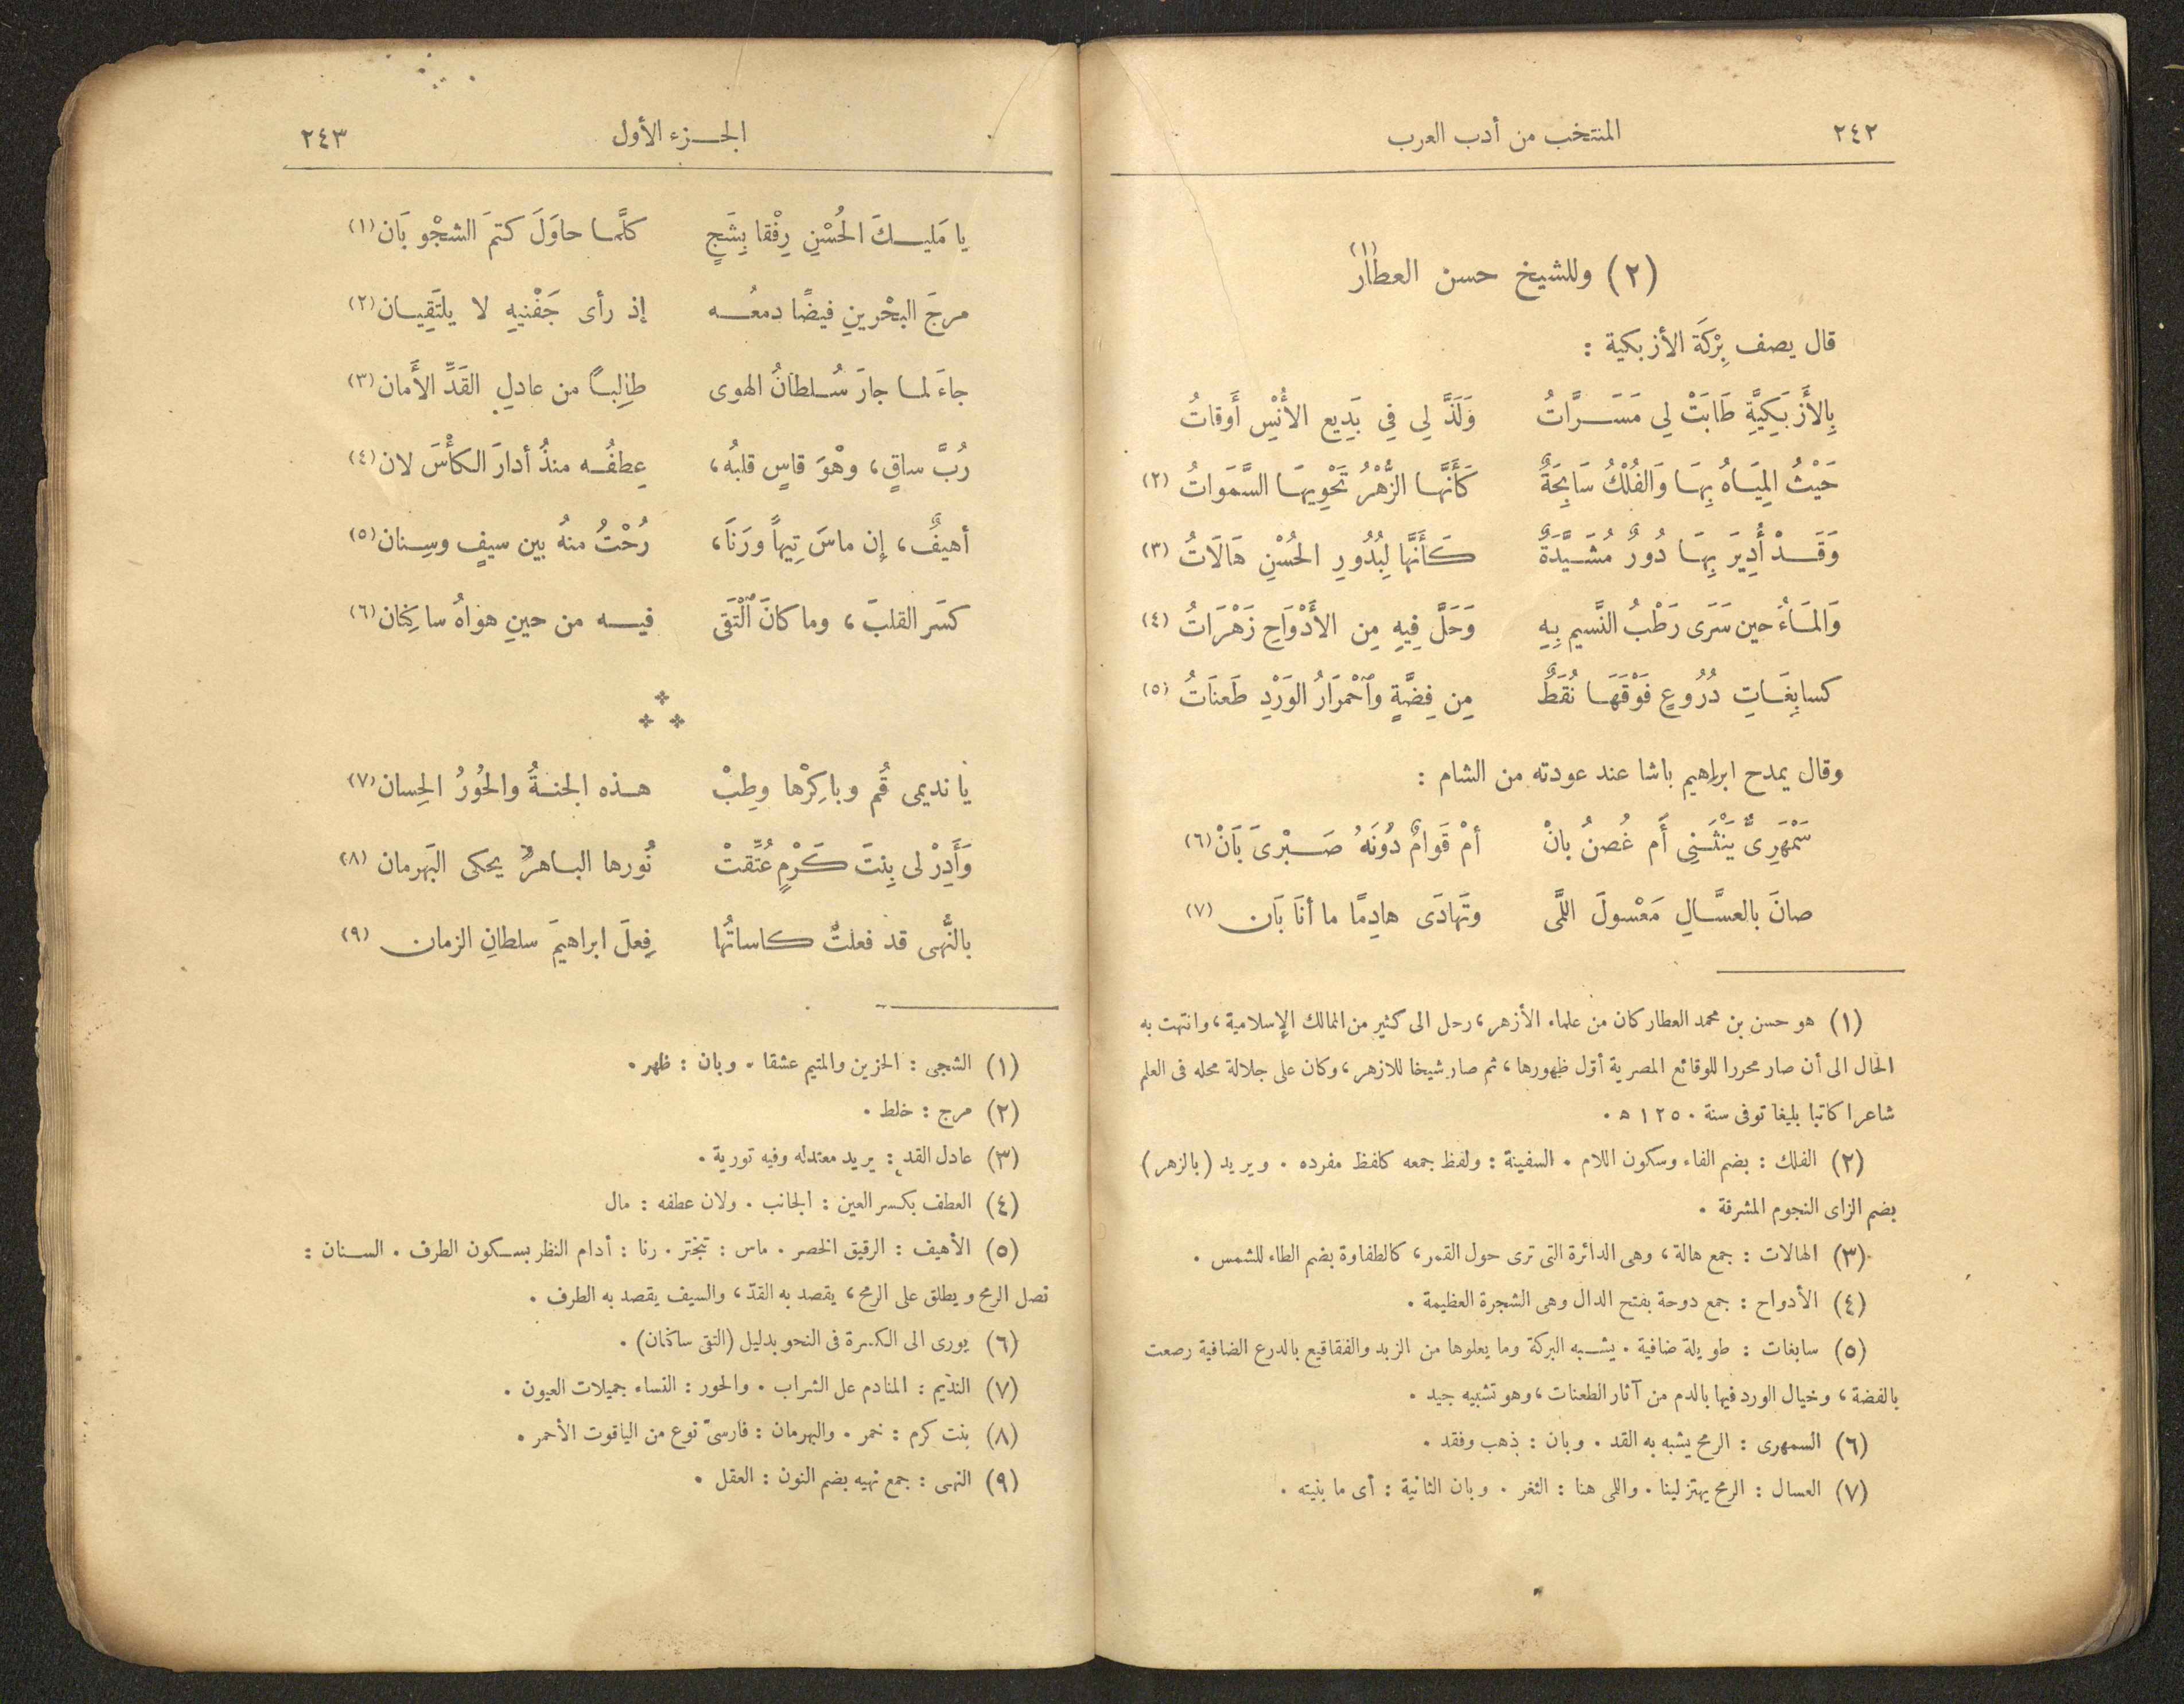 ٢٤٢ المنتخب من أدب العرب
(٢) وللشيخ حسن العطار(١)
قال يصف بِرْكَة الأزبكية :
بِالأَزبَكِيَّةِ طَابَتْ لِي مَسَــرَّاتُ وَلَذَّ لِي فِي بَدِيعِ الأُنْسِ أَوقاتُ
حَيْثُ المِيَاهُ بِهَا وَالفُلْكُ سَابِحَةٌ كَأَنَّهَا الزُّهْرُ تَحْوِيهَا السَّمَوَاتُ (٢)
وَقَدْ أُدِيرَ بِهَا دُورٌ مُشَيَّدَةٌ كَأَنَّهَا لِبُدُورِ الحُسْنِ هَالَاتُ (٣)
وَالمَاءُ حين سَرَى رَطْبُ النَّسِيمِ بِهِ وَحَلَّ فِيهِ مِن الأَدْوَاحِ زَهْرَاتُ (٤)
كسابِغَاتِ دُرُوعٍ فَوْقَهَا نُقَطٌ مِن فِضَّةٍ وٱحْمرَارُ الوَرْدِ طَعنَاتُ (٥)
وقال يمدح ابراهيم باشا عند عودته من الشام :
سَمْهَرِىٌّ يَنْثَنِي أَم غُصنُ بانْ أمْ قَوامٌ دُونَهُ صَبْرىَ بَانْ (٦)
صانَ بالعسَّالِ مَعْسولَ اللَّمى وتَهادَى هادِمًا ما أنَا بَان (٧)
(١) هو حسن بن محمد العطار كان من علماء الأزهر، رحل الى كثير من الممالك الإسلامية، وانتهت به
الحال الى أن صار محررا للوقائع المصرية أوّل ظهورها، ثم صار شيخا للازهر، وكان على جلالة محله فى العلم
شاعرا كاتبا بليغا توفى سنة ١٢٥٠ ه .
(٢) الفلك : بضم الفاء وسكون اللام . السفينة : ولفظ جمعه كلفظ مفرده . ويريد (بالزهر)
بضم الزاى النجوم المشرقة .
(٣) الهالات : جمع هالة، وهى الدائرة التى ترى حول القمر، كالطفاوة بضم الطاء للشمس .
(٤) الأدواح : جمع دوحة بفتح الدال وهى الشجرة العظيمة .
(٥) سابغات : طويلة ضافية . يشبه البركة وما يعلوها من الزبد والفقاقيع بالدرع الضافية رصعت
بالفضة، وخيال الورد فيها بالدم من آثار الطعنات، وهو تشبيه جيد .
(٦) السمهرى : الرمح يشبه به القد . وبان : ذهب وفقد .
(٧) العسال : الرمح يهتز لينا . واللى هنا : الثغر . وبان الثانية : أى ما بنيته .
الجــزء الأول ٢٤٣
يا مَليــكَ الحُسْنِ رِفْقا بِشَجٍ كلَّما حاوَلَ كتمَ الشجْو بَان (١)
مرجَ البحْرينِ فيضًا دمعُــه إذ رأى جَفْنيهِ لا يلتَقِيــان (٢)
جاءَ لما جارَ سُلطانُ الهوى طالِباً من عادلِ القَدِّ الأَمان (٣)
رُبَّ ساقٍ، وهْوَ قاسٍ قلبُه، عِطفُــه منذُ أدارَ الكأْسَ لان (٤)
أهيفٌ، إن ماسَ تِيهاً ورَنَا، رُحْتُ منهُ بين سيفٍ وسِنان (٥)
كسَر القلبَ، وما كانَ ٱلْتَقى فيــه من حينِ هواهُ ساكِنان (٦)
يا نديمى قُم وباكِرْها وطِبْ هــذه الجنةُ والحُورُ الحِسان (٧)
وَأَدِرْ لى بِنتَ كَرْمٍ عُتِّقتْ نُورها الباهرُ يحكى البَهرمان (٨)
بالنُّهى قد فعلتْ كاساتُها فِعلَ ابراهيمَ سلطانِ الزمان (٩)
(١) الشجى : الحزين والمتيم عشقا . وبان : ظهر .
(٢) مرج : خلط .
(٣) عادل القد : يريد معتدله وفيه تورية .
(٤) العطف بكسر العين : الجانب . ولان عطفه : مال
(٥) الأهيف : الرقيق الخصر . ماس : تبختر . رنا : أدام النظر بســكون الطرف . الســنان :
نصل الرمح ويطلق على الرمح، يقصد به القدّ، والسيف يقصد به الطرف .
(٦) يورى الى الكسرة فى النحو بدليل (التقى ساكنان) .
(٧) النديم : المنادم على الشراب . والحور : النساء جميلات العيون .
(٨) بنت كرم : خمر . والبهرمان : فارسىّ نوع من الياقوت الأحمر .
(٩) النهى : جمع نهيه بضم النون : العقل .